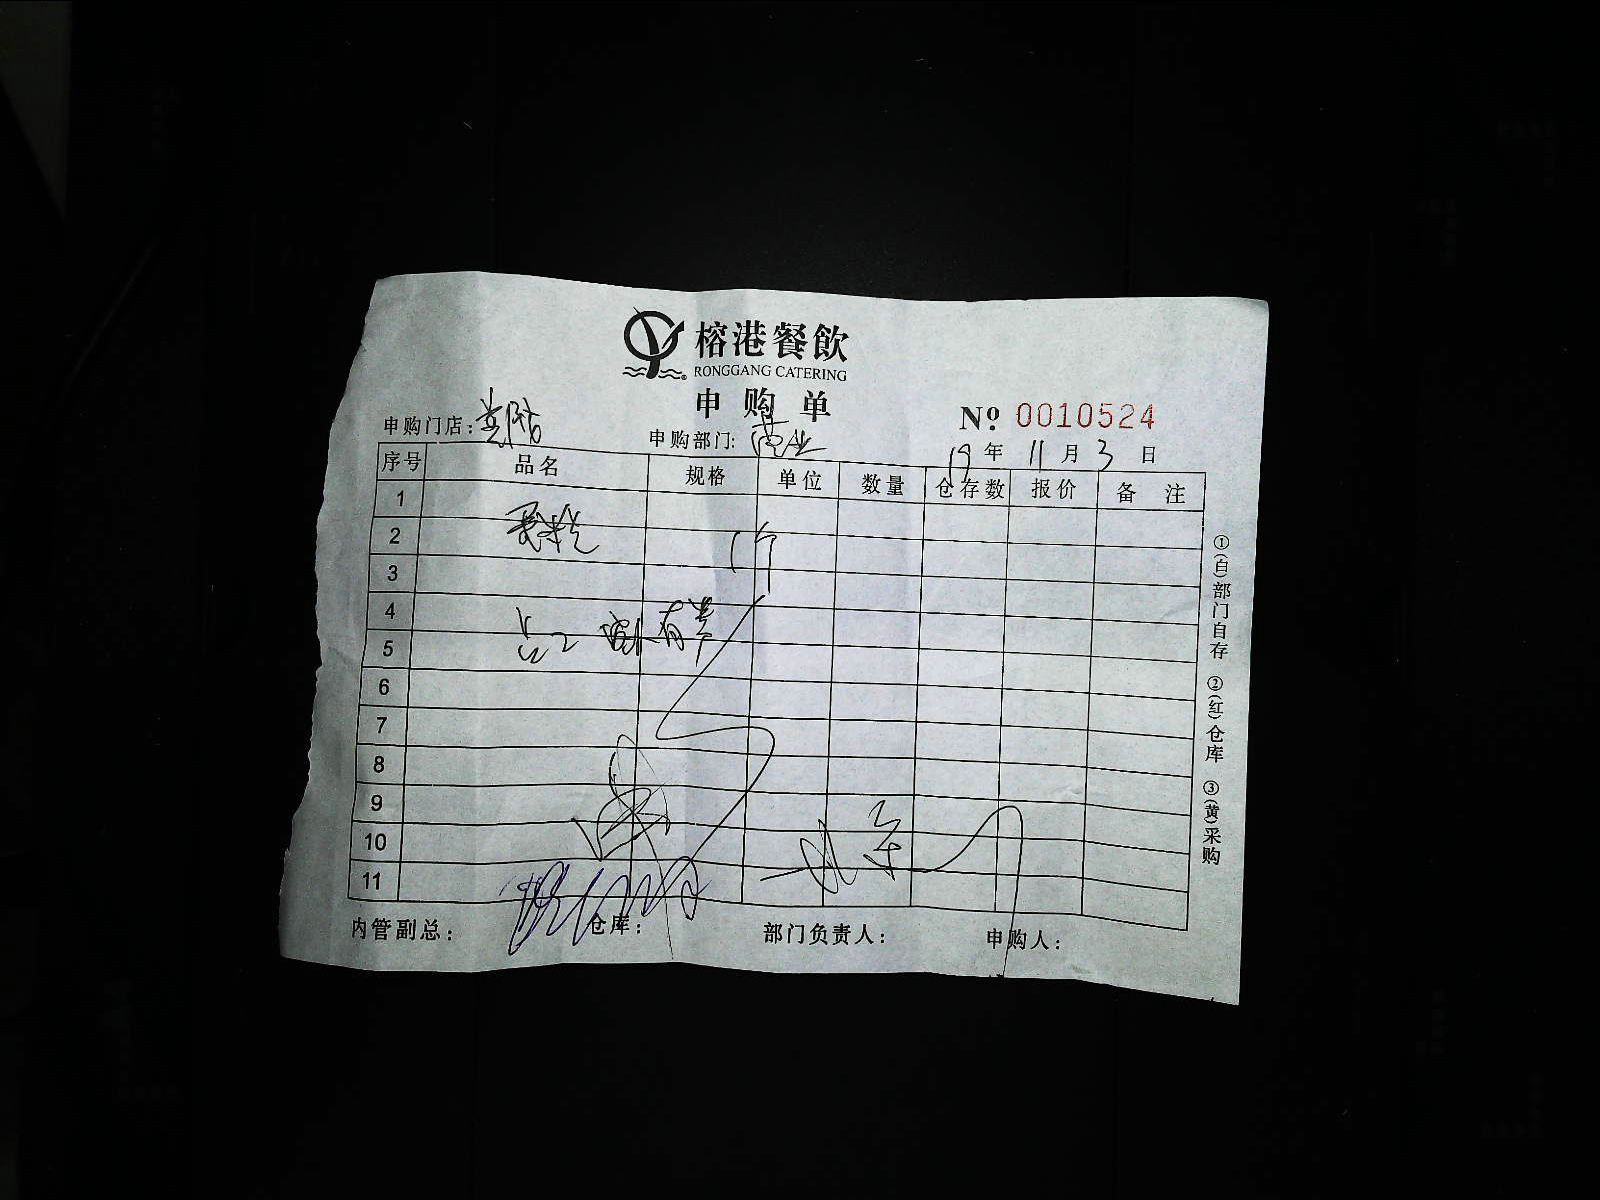 榕港餐飲
RONGGANG CATERING
申购单
№ 0010524
申购门店： 申购部门: 营业 19年 11月 3日
序号 品名 规格 单位 数量 仓存数 报价 备注
1
2
3
4
5
6
7
8
9
10
11
内管副总： 仓库： 部门负责人： 申购人：
①(白)部门自存 ②(红)仓库 ③(黄)采购